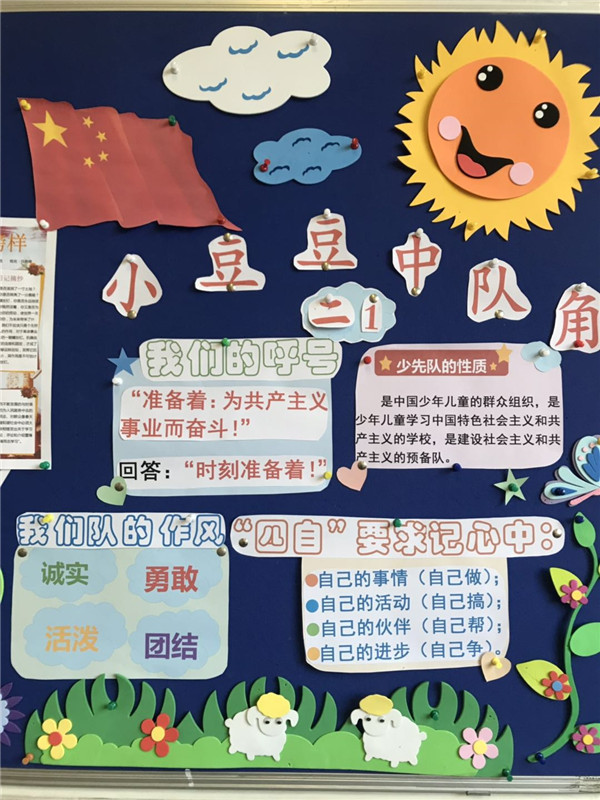 小豆豆中队角
二1
我们的呼号
“准备着：为共产主义
事业而奋斗！”
回答：“时刻准备着！”
少先队的性质
是中国少年儿童的群众组织，是
少年儿童学习中国特色社会主义和共
产主义的学校，是建设社会主义和共
产主义的预备队。
我们队的作风
诚实
勇敢
活泼
团结
“四自”要求记心中：
自己的事情（自己做）；
自己的活动（自己搞）；
自己的伙伴（自己帮）；
自己的进步（自己争）。